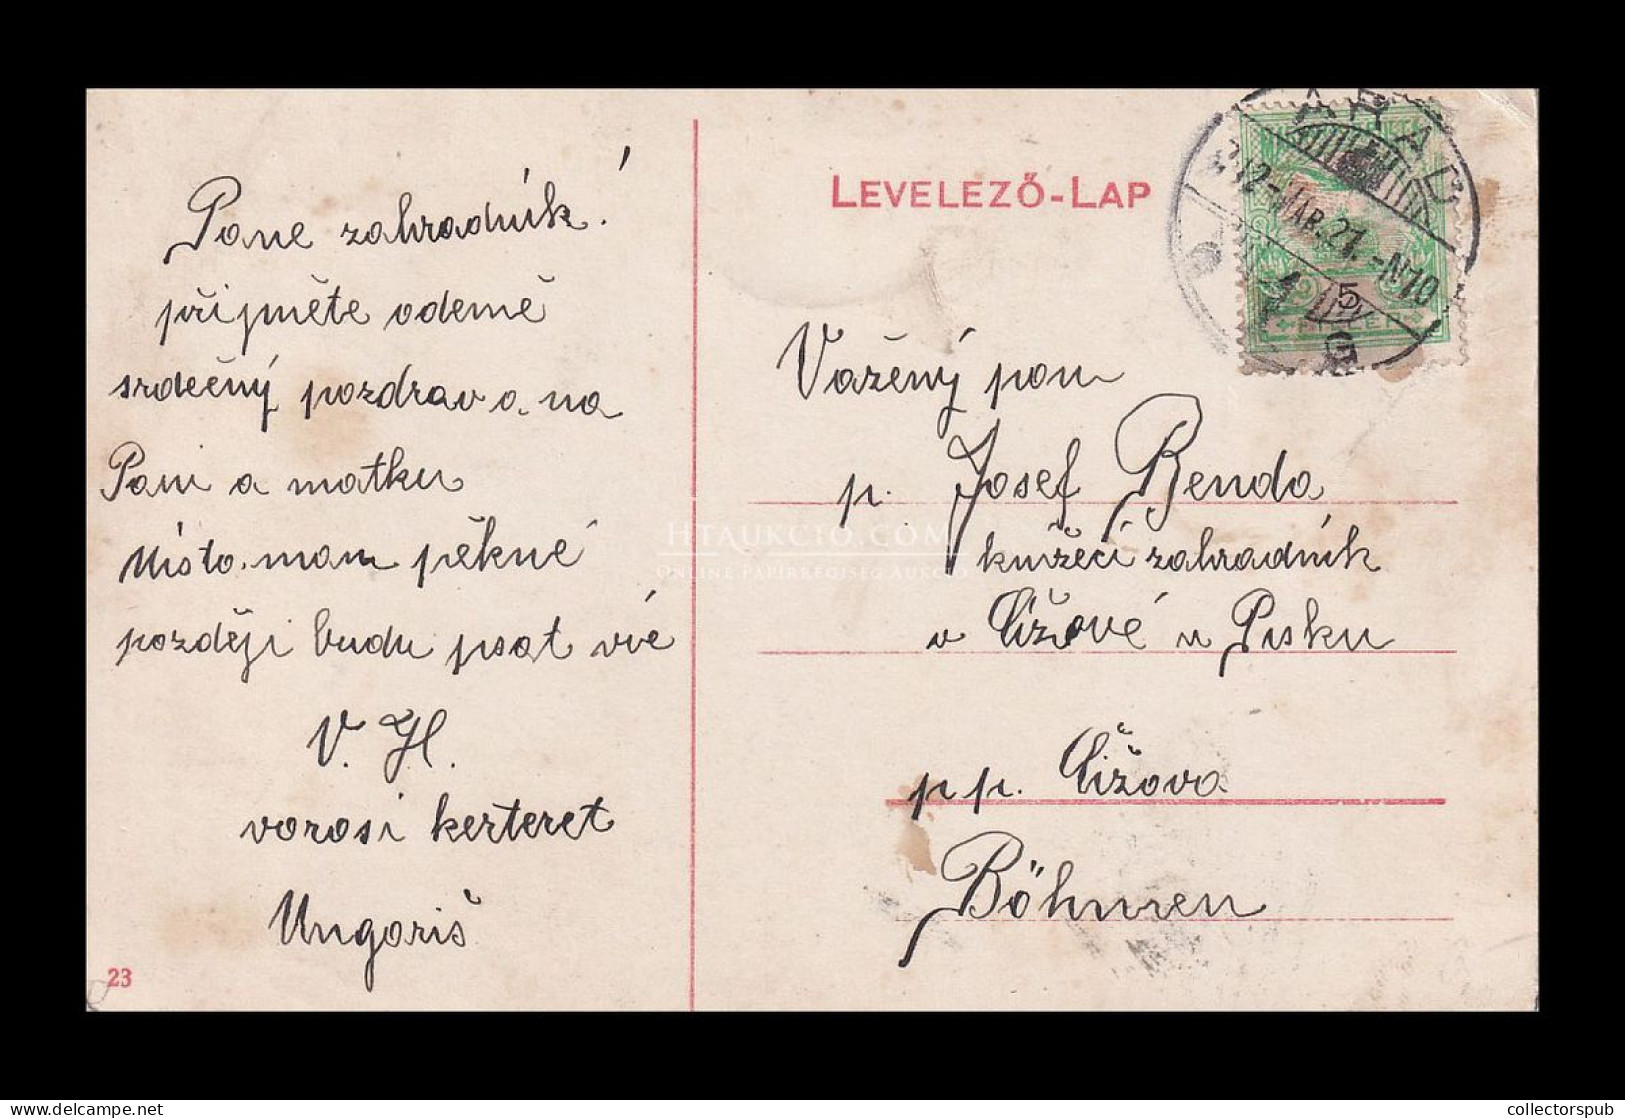 Pane zahradník!
přijměte odemě
srdečný pozdrav a na
Pani a matku
Místo mam pěkné
později budu psat víc
V. H.
vorosi kerteret
Ungariš
23
LEVELEZŐ-LAP
ARAD
912-MÁR.27.-N10
5
FILLÉR
Važený pan
p. Josef Benda
knižecí zahradník
v Čižové u Pisku
pp. Čižova
Böhmen
HTAUKCIO.COM
ONLINE PAPÍRRÉGISÉG AUKCIÓ
collectorspub